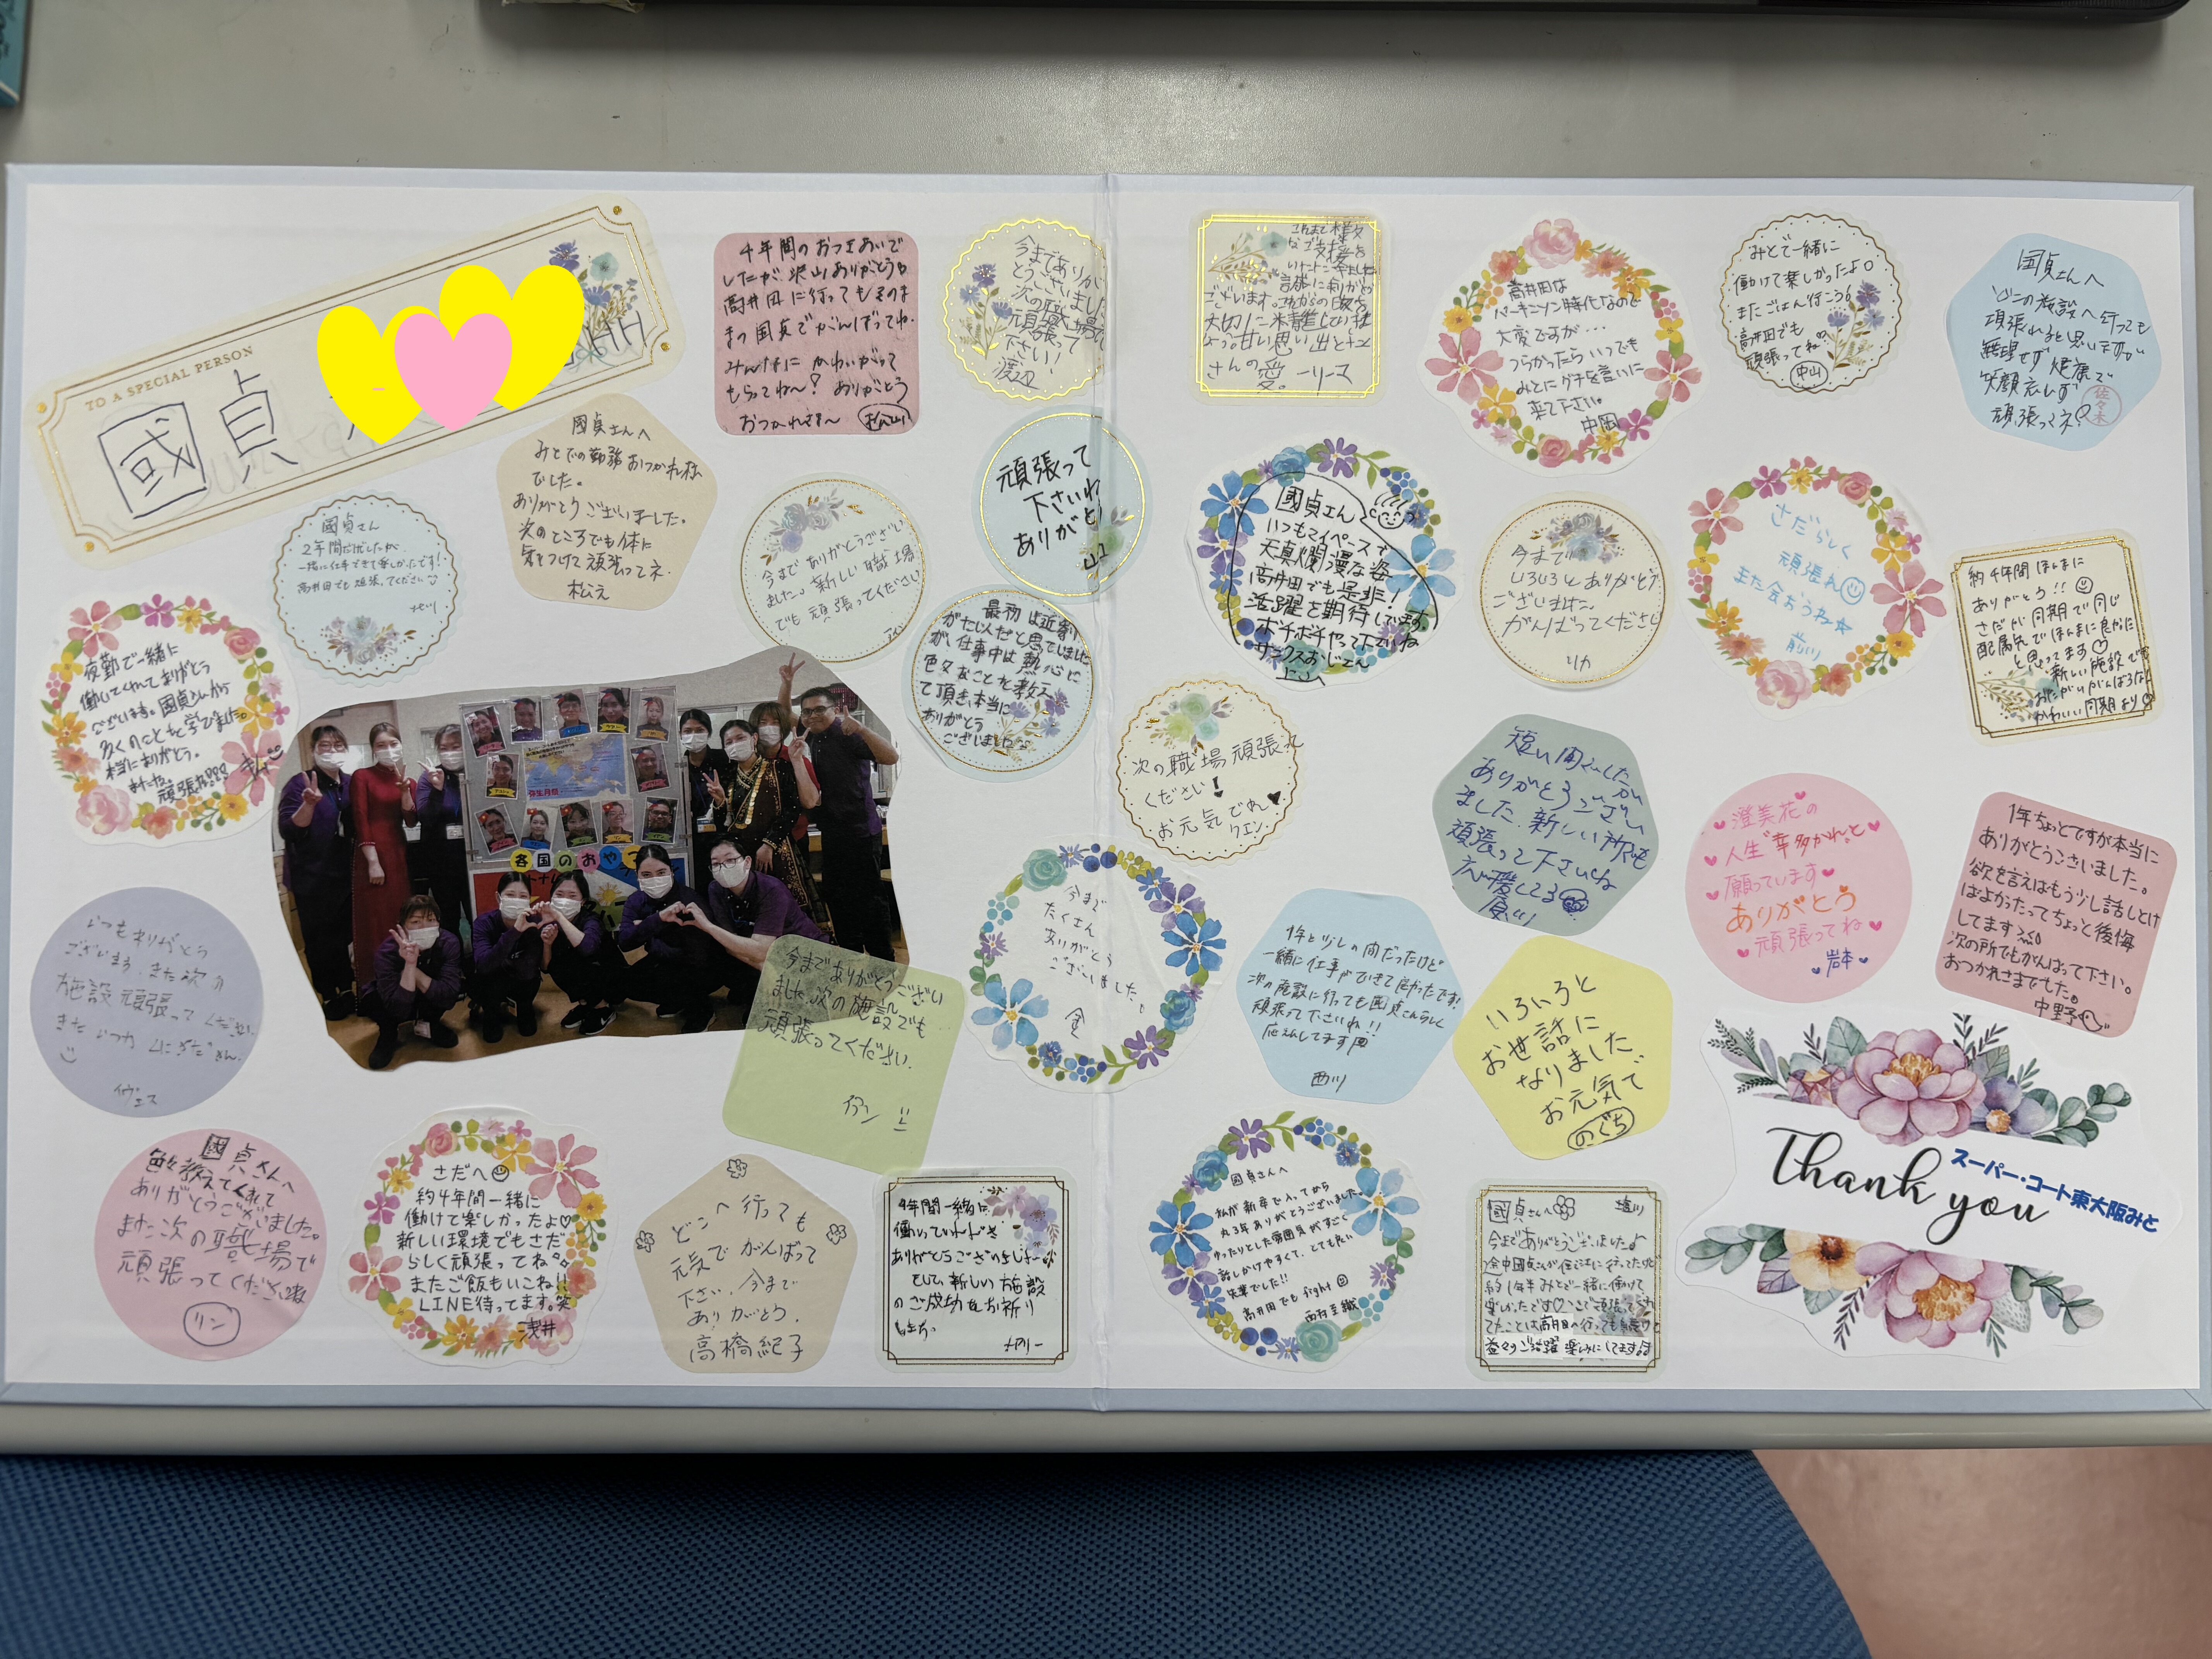 TO A SPECIAL PERSON
國貞
4年間のおつきあいで
したが、沢山ありがとう
高井田に行ってもそのま
まの国貞でがんばってね。
みんなに かわいがって
もらってね〜? ありがとう
おつかれさま〜
松山
今までありが
とうございました
次の職場で
頑張って
下さい!
渡辺
國貞さんへ
みとでの勤務おつかれ様
でした。
ありがとうございました。
次のところでも体に
気をつけて頑張ってネ
松元
頑張って
下さいね
ありがとう
國貞さん
2年間でしたが
一緒に仕事できて楽しかったです!
高井田でも頑張ってください
今まで ありがとうござい
ました。新しい職場
でも 頑張ってください
最初は近寄り
がたい人だと思っていました
が、仕事中は熱心に
色々なことを教え
て頂き、本当に
ありがとう
ございました
夜勤で一緒に
働いてくれてありがとう
ございます。國貞さんから
多くのことを学びました。
本当にありがとう。
頑張れ
各国のおやつ
弥生月間
いつもありがとう
ございます。また次の
施設 頑張って ください。
イヴェス
今までありがとうござい
ました 次の施設でも
頑張ってください.
國貞さんへ
色々教えてくれて
ありがとうございました。
また次の職場で
頑張ってくださいね
リン
さだへ
約4年間一緒に
働けて楽しかったよ♡
新しい環境でもさだ
らしく頑張ってね
またご飯もいこね!!
LINE待ってます。笑
浅井
どこへ行っても
元気で がんばって
下さい、今まで
ありがとう.
高橋紀子
4年間一緒に
働いていただき
ありがとうございました
そして、新しい施設
のご成功をお祈り
メアリー
これまで様々
なご支援を
いただきました
ございます。これからの
さんの愛。ーリーマ
高井田は
パーキンソン特化なので
大変ですが・・・
つらかったら いつでも
みとにグチを言いに
来て下さい。
中岡
みとで一緒に
働けて楽しかったよ。
またごはん行こう
高井田でも
頑張ってね
中山
国貞さんへ
どこの施設へ行っても
頑張れると思いますが
無理せず 健康で
笑顔忘れず
頑張ってネ
佐々木
國貞さん
いつもマイペースで
天真爛漫な姿
高井田でも是非!
活躍を期待しています。
ボチボチやって下さいね
サンクスおじさん
今まで
いろいろとありがとう
ございました。
がんばってください
リカ
さだらしく
頑張れ
また会おうね☆
前川
約4年間ほんまに
ありがとう!!
さだが同期で同じ
配属先でほんまに良かった
と思ってます
新しい施設でも
おたがいがんばろな
かわいい同期より
次の職場頑張れ
ください!
お元気でね♥
クエン
短い間でしたが
ありがとうござい
ました. 新しい所でも
頑張って下さいね
応援してる
今まで
たくさん
ありがとう
ございました。
金
1年と少しの間だったけど
一緒に仕事ができて良かったです!
次の施設に行っても国貞さんらしく
頑張って下さいね!!
応えんしてます
西川
いろいろと
お世話に
なりました
お元気で
のぐち
澄美花の
人生 幸多かれと
願っています
ありがとう
頑張ってね
岩本
1年ちょっとですが本当に
ありがとうございました。
欲を言えばもう少し話しとけ
ばよかったってちょっと後悔
してます
次の所でもがんばって下さい。
おつかれさまでした。
中野
國貞さんへ
私が新卒で入ってから
丸3年ありがとうございました。
ゆったりとした雰囲気がすごく
話しかけやすくて、とても良い
先輩でした!!
高井田でもfight
國貞さんへ
今までありがとうございました
約1年半みとで一緒に働けて
楽しかったです♡
Thank you
スーパー・コート東大阪みと